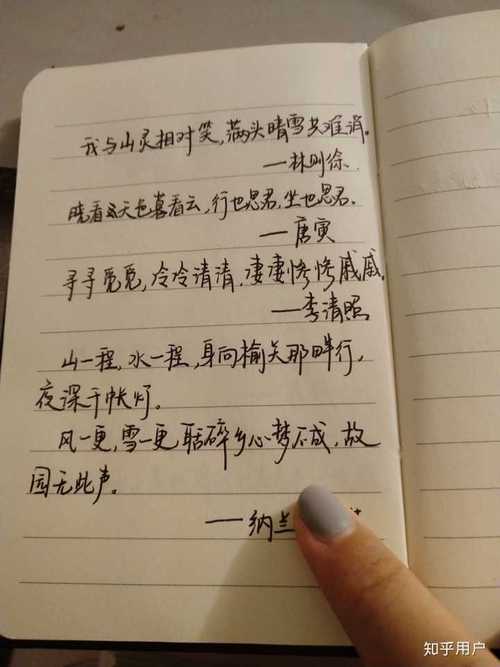 我与山灵相对笑,满头晴雪共难消。
—林则徐
晓看天色暮看云,行也思君,坐也思君。
—唐寅
寻寻觅觅,冷冷清清,凄凄惨惨戚戚。
—李清照
山一程,水一程,身向榆关那畔行,
夜深千帐灯。
风一更,雪一更,聒碎乡心梦不成,故
园无此声。
—纳兰
知乎用户